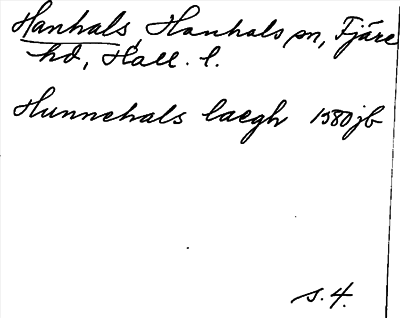 Hanhals, Hanhals sn, Fjäre
hd, Hall. l.
Hunnehals laegh 1580 jb
s. 4.